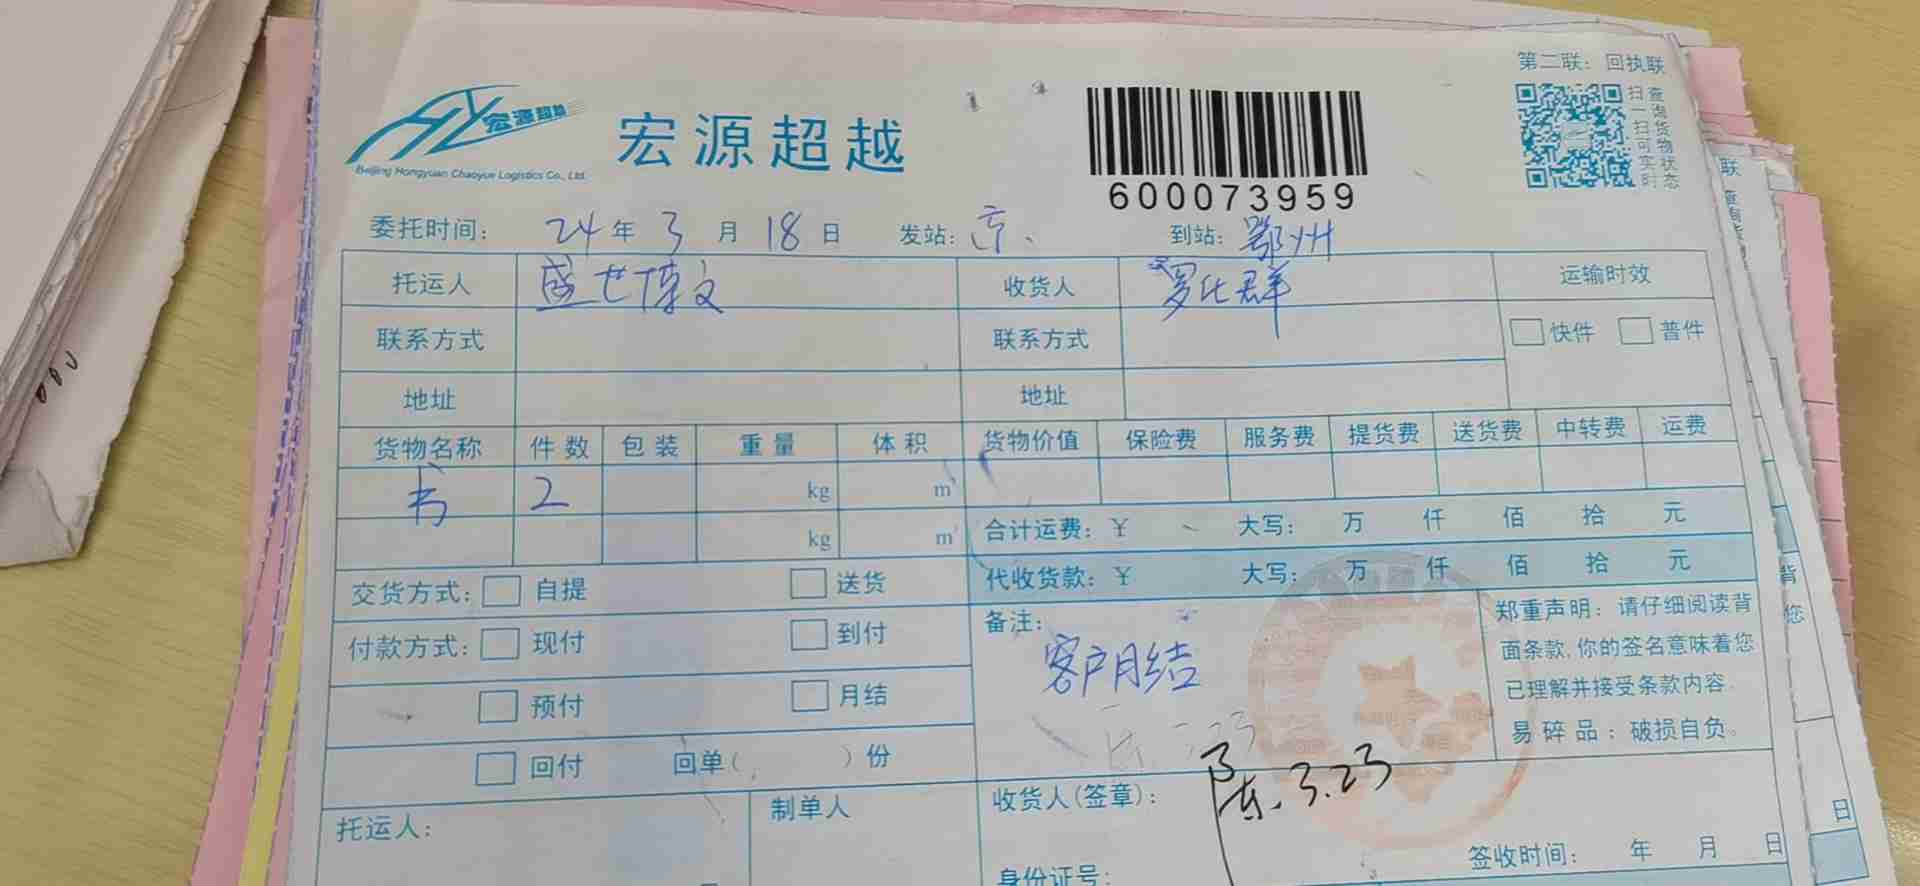 第二联：回执联
宏源超越
Beijing Hongyuan Chaoyue Logistics Co., Ltd.
宏源超越
600073959
扫一扫可实时
查询货物状态
委托时间： 24 年 3 月 18 日 发站：京、 到站：鄂州
托运人 盛世博文 收货人 罗化群 运输时效
联系方式 联系方式 快件 普件
地址 地址
货物名称 件数 包装 重量 体积 货物价值 保险费 服务费 提货费 送货费 中转费 运费
书 2 kg m³
kg m³ 合计运费：¥ 大写： 万 仟 佰 拾 元
代收货款：¥ 大写： 万 仟 佰 拾 元
交货方式： 自提 送货
付款方式： 现付 到付
预付 月结
回付 回单（ ）份
备注：
客户月结
郑重声明：请仔细阅读背
面条款，你的签名意味着您
已理解并接受条款内容。
易碎品：破损自负。
托运人：
制单人
收货人（签章）： 陈.3.23
签收时间： 年 月 日
身份证号：
联
背
您
日